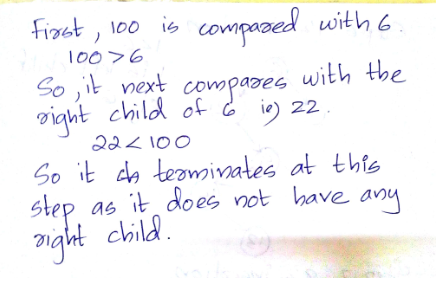 First, 100 is compared with 6.
100 > 6
So, it next compares with the
right child of 6 ie) 22.
22 < 100
So it terminates at this
step as it does not have any
right child.